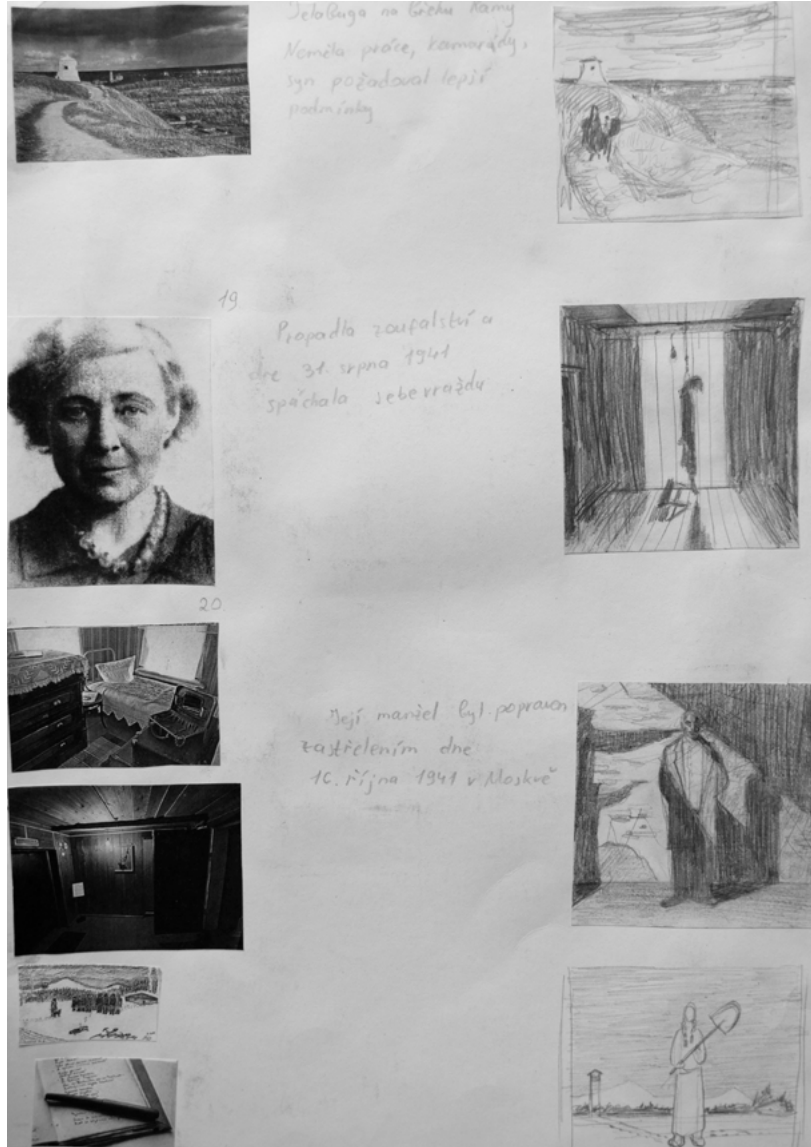 Jelabuga na břehu Kamy
Neměla práce, kamarády,
syn požadoval lepší
podmínky
19
Propadla zoufalství a
dne 31. srpna 1941
spáchala sebevraždu.
20
Její manžel byl popraven
zastřelením dne
16. října 1941 v Moskvě